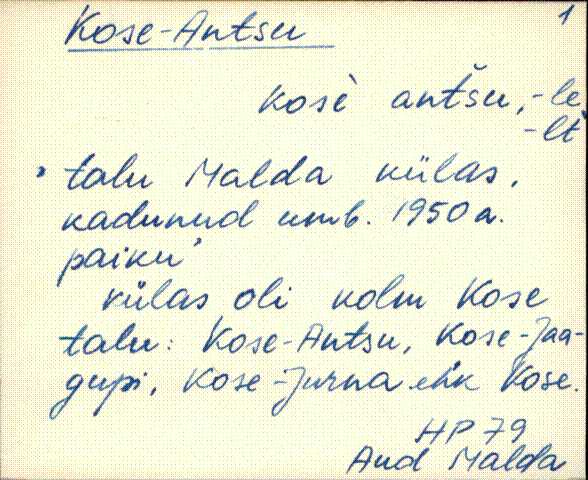 Kose-Antsu 1
kosè antšu, -le,
-lt
'talu Malda külas,
kadunud umb. 1950 a.
paiku'
külas oli kolm Kose
talu: Kose-Antsu, Kose-Jaa-
gupi, Kose-Jurna ehk Kose.
HP 79
Aud Malda